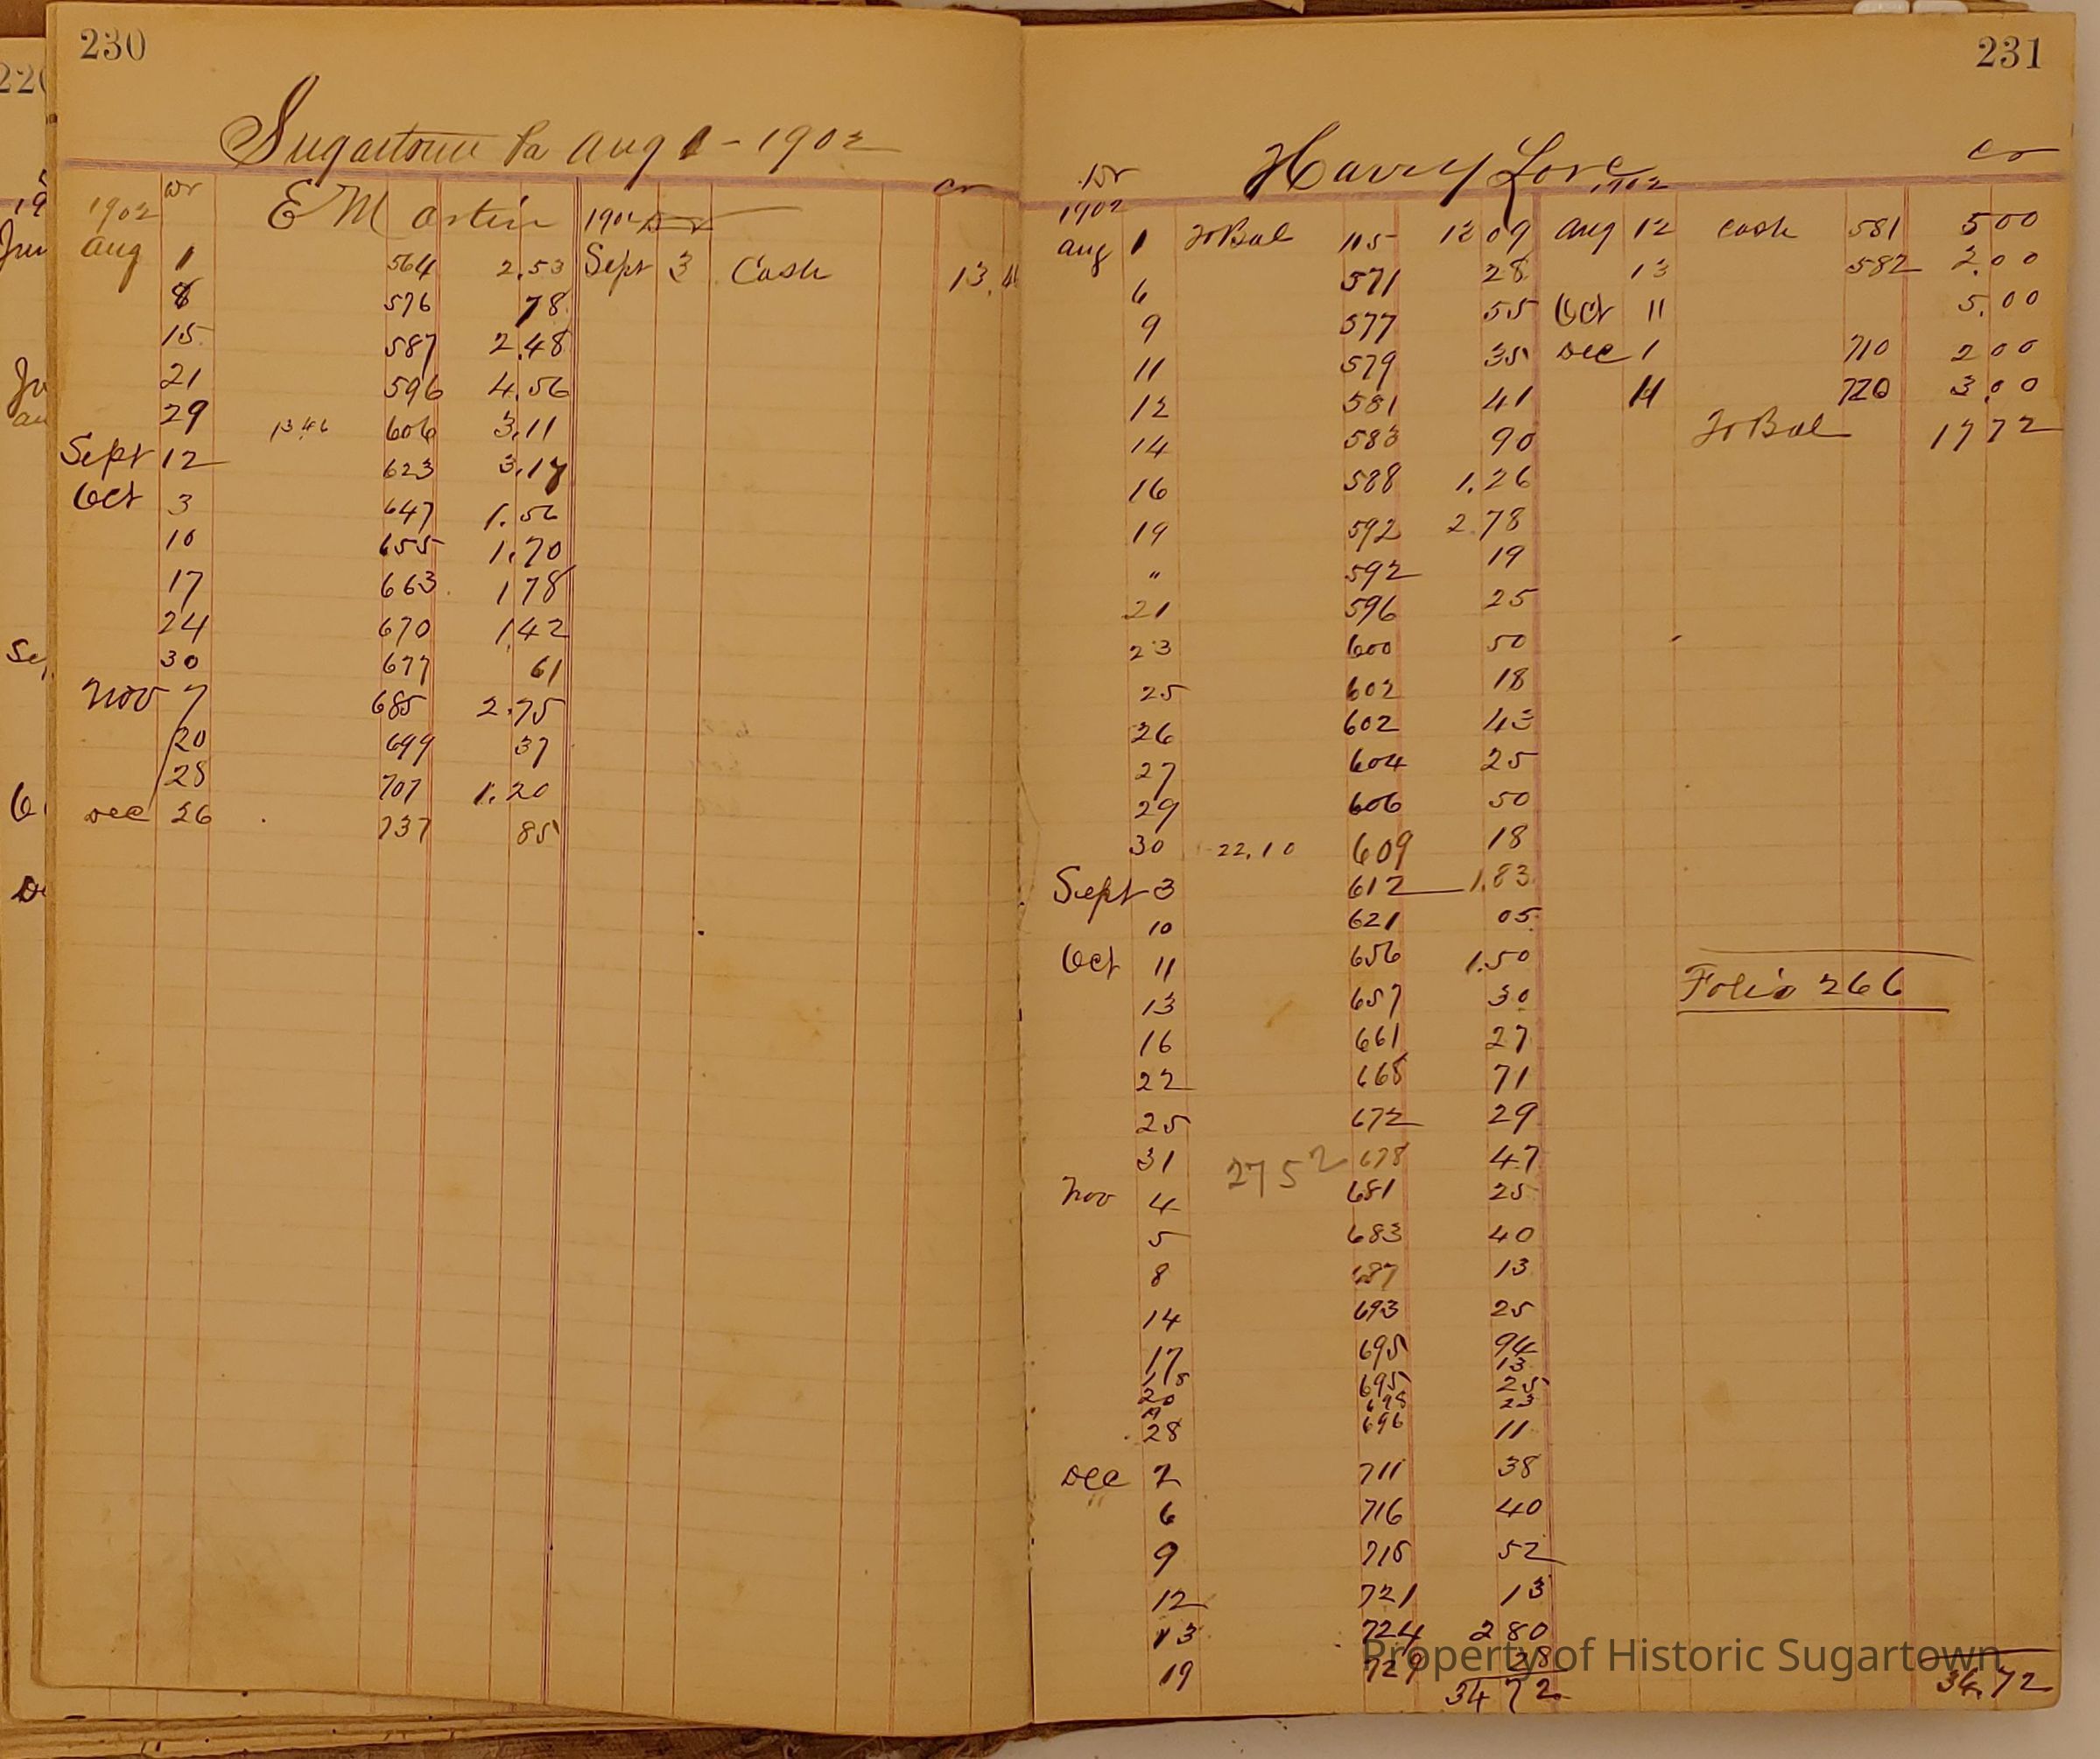 230
Sugartown Pa Aug 1 - 1902
Dr Cr
1902 E Martin 1902
Aug 1 564 2.53 Sept 3 Cash 13.4
8 576 78
15 587 2.48
21 596 4.56
29 13 46 606 3.11
Sept 12 623 3.17
Oct 3 647 1.56
10 655 1.70
17 663 1 78
24 670 1 42
30 677 61
Nov 7 685 2.75
20 699 37
28 707 1.20
Dec 26 737 85
231
Dr Harry Love Cr
1902 1902
Aug 1 To Bal 115 12 09 Aug 12 Cash 581 5 00
6 571 28 13 582 2.00
9 577 55 Oct 11 5.00
11 579 35 Dec 1 710 2 00
12 581 41 11 720 3.00
14 583 90 To Bal 17 72
16 588 1.26
19 592 2.78
" 592 19
21 596 25
23 600 50
25 602 18
26 602 43
27 604 25
29 606 50
30 22.10 609 18
Sept 3 612 1.83
10 621 05
Oct 11 656 1.50
13 657 30
16 661 27
22 668 71
25 672 29
31 27 52 678 47
Nov 4 681 25
5 683 40
8 687 13
14 693 25
17 695 94
18 13
20 695 25
698 23
28 696 11
Dec 2 711 38
6 716 40
9 718 52
12 721 13
13 724 2 80
19 729 28
34 72 34.72
Folio 266
Property of Historic Sugartown